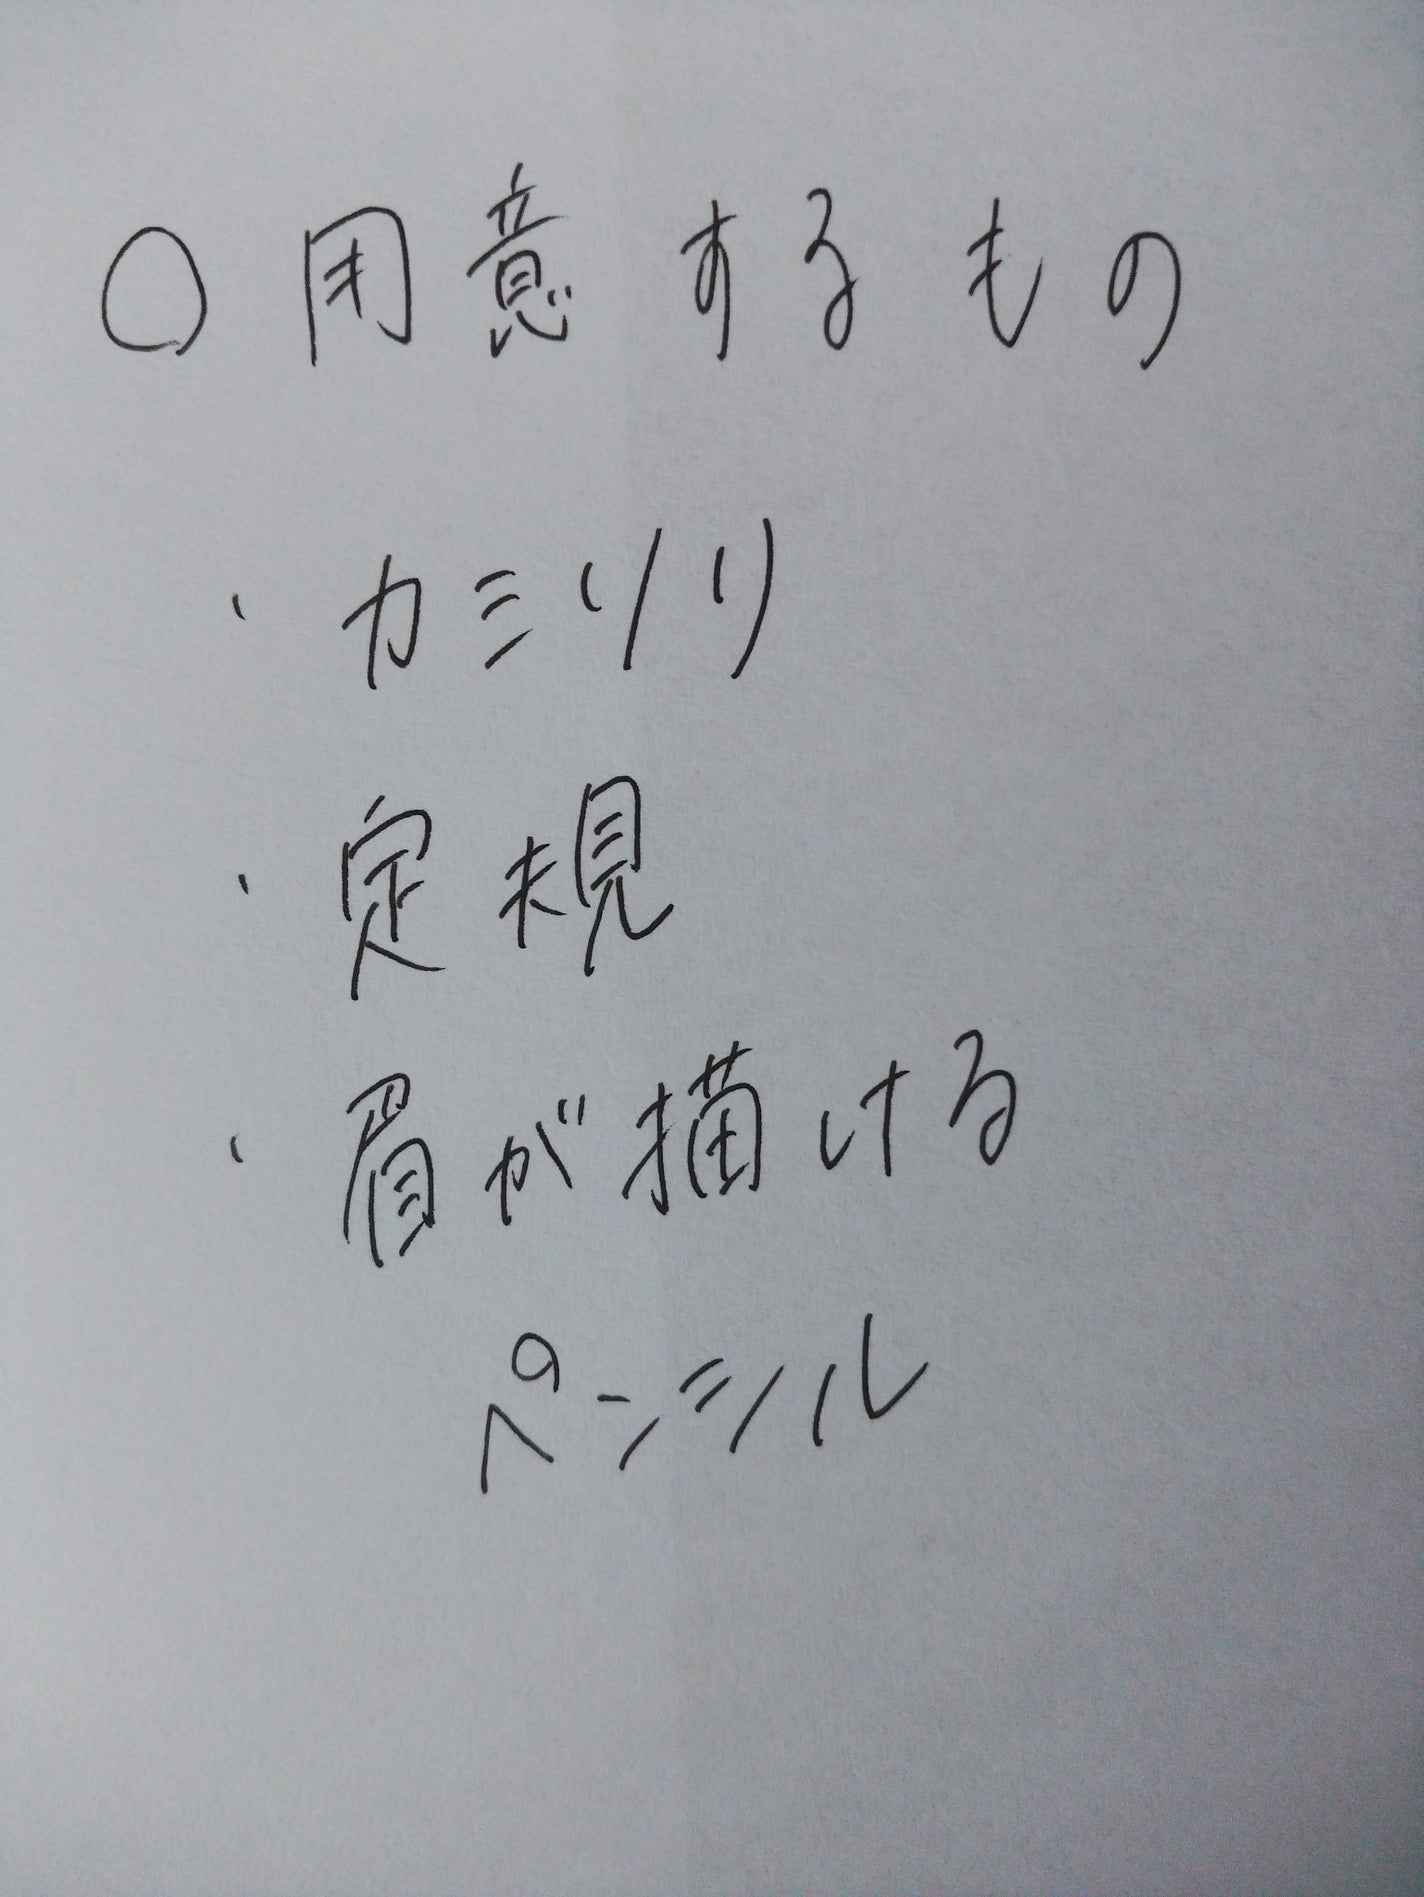 ○用意するもの
・カミソリ
・定規
・眉が描ける
ペンシル